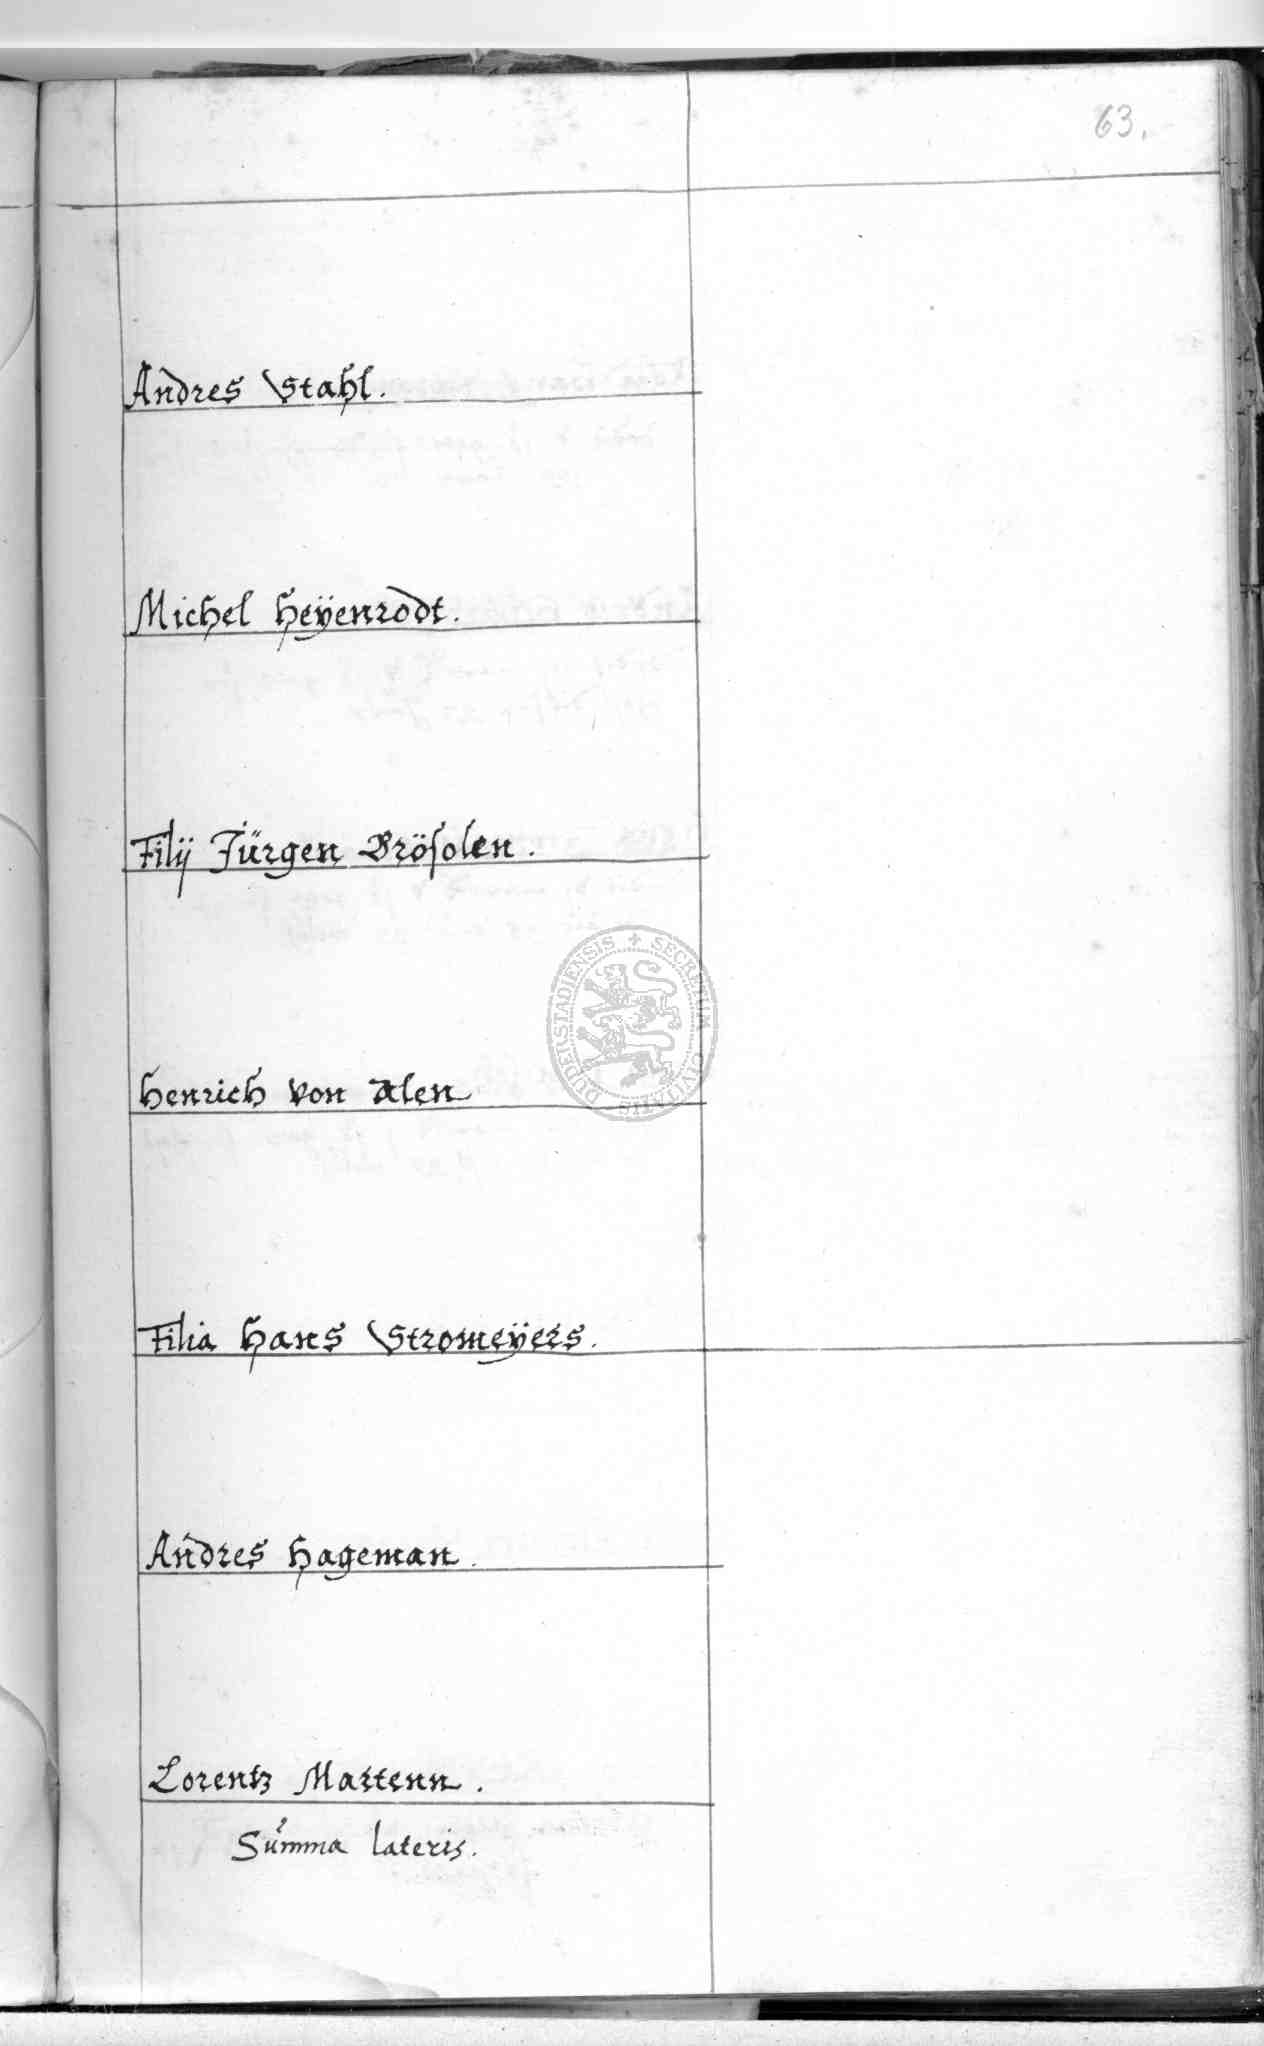 63.
Andres Stahl.
Michel Heÿenrodt.
Filij Jürgen Brösolen.
Henrich von Alen
Filia Hans Stromeÿers.
Andres Hageman.
Lorentz Martenn.
Summa lateris.
SECRETUM CIVITATIS DUDERSTADIENSIS